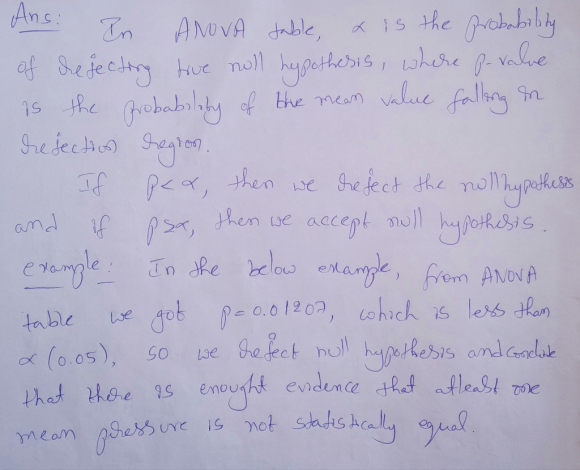 Ans: In ANOVA table, α is the probability
of rejecting true null hypothesis, where p-value
is the probability of the mean value falling in
rejection region.
If p<α, then we reject the null hypothesis
and if p≥α, then we accept null hypothesis.
example: In the below example, from ANOVA
table we got p=0.01207, which is less than
α (0.05), so we reject null hypothesis and conclude
that there is enought evidence that atleast one
mean pressure is not statistically equal.